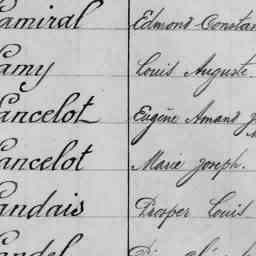 Lamiral Edmond Constan
Lamy Louis Auguste.
Lancelot Eugène Amand J
Lancelot Marie Joseph.
Landais Prosper Louis
Landel